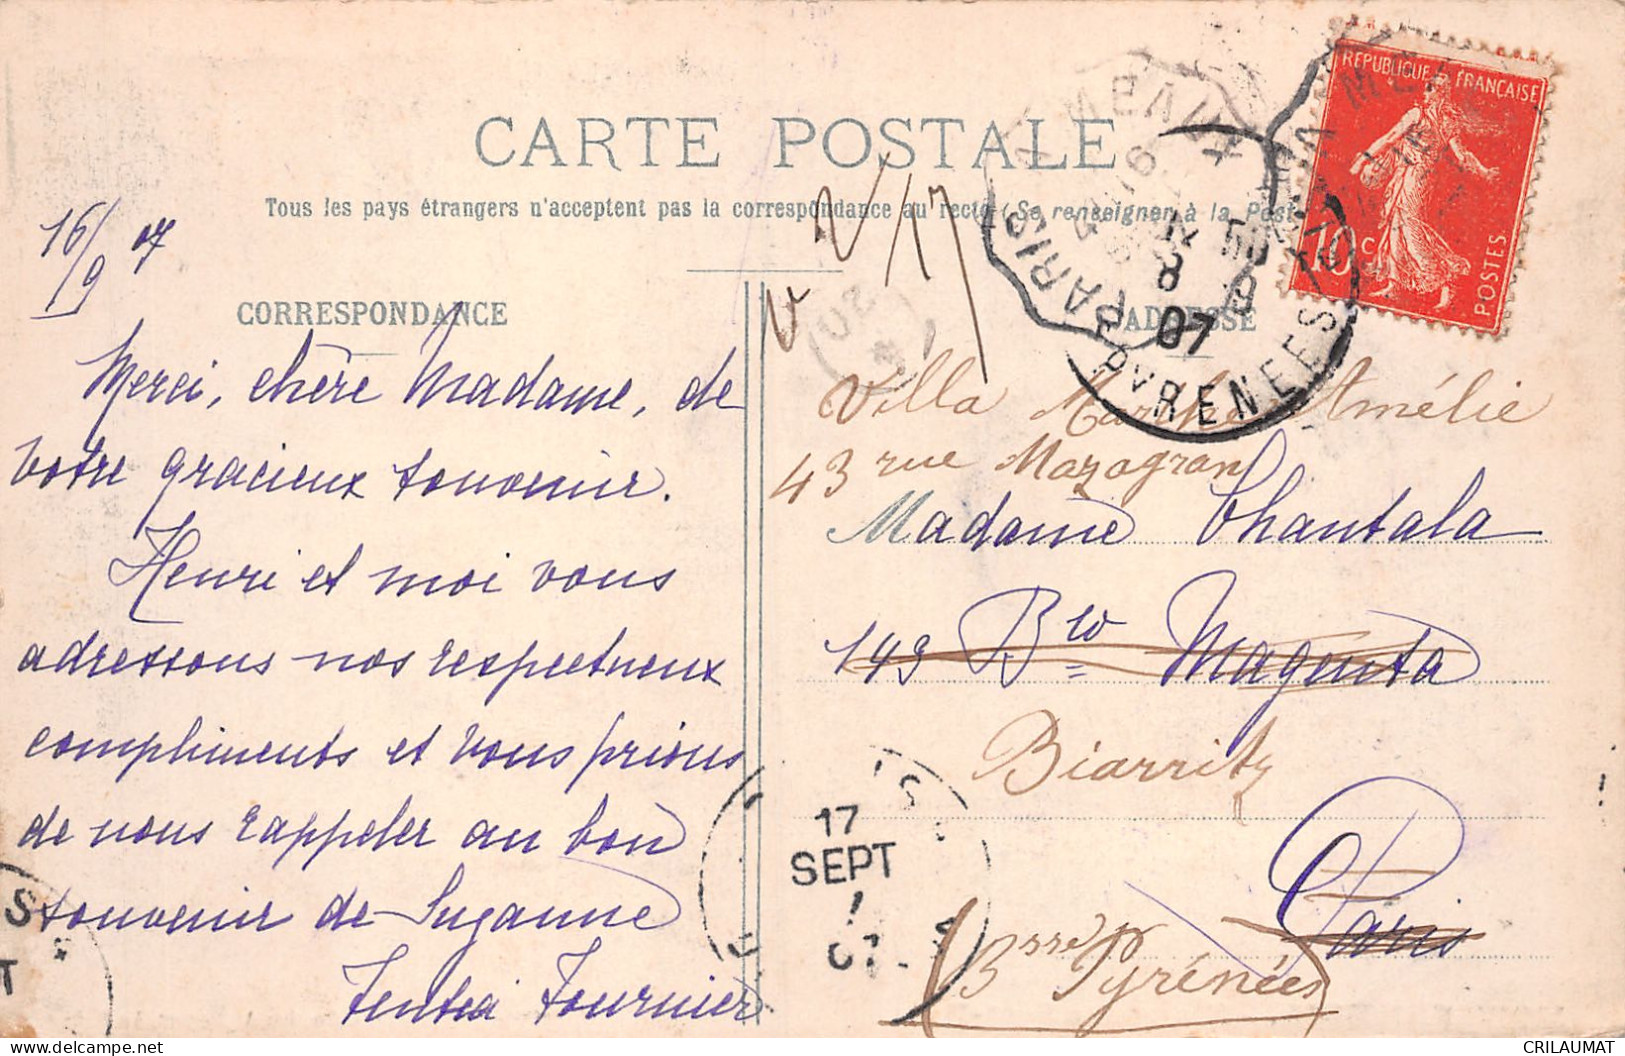 CARTE POSTALE
Tous les pays étrangers n'acceptent pas la correspondance au recto (Se renseigner à la Poste
16/9 07
V/17
V
CORRESPONDANCE
ADRESSE
REPUBLIQUE FRANÇAISE
10 c
POSTES
PARIS
8
07
PYRENEES
Merci, chère Madame, de
votre gracieux souvenir.
Henri et moi vous
adressons nos respectueux
compliments et vous prions
de nous rappeler au bon
souvenir de Suzanne
Fournier
Villa Marthe Amélie
43 rue Mazagran
Madame Chantala
149 Bld Magenta
Biarritz
Paris
(Bsses Pyrénées)
17
SEPT
07
CRILAUMAT